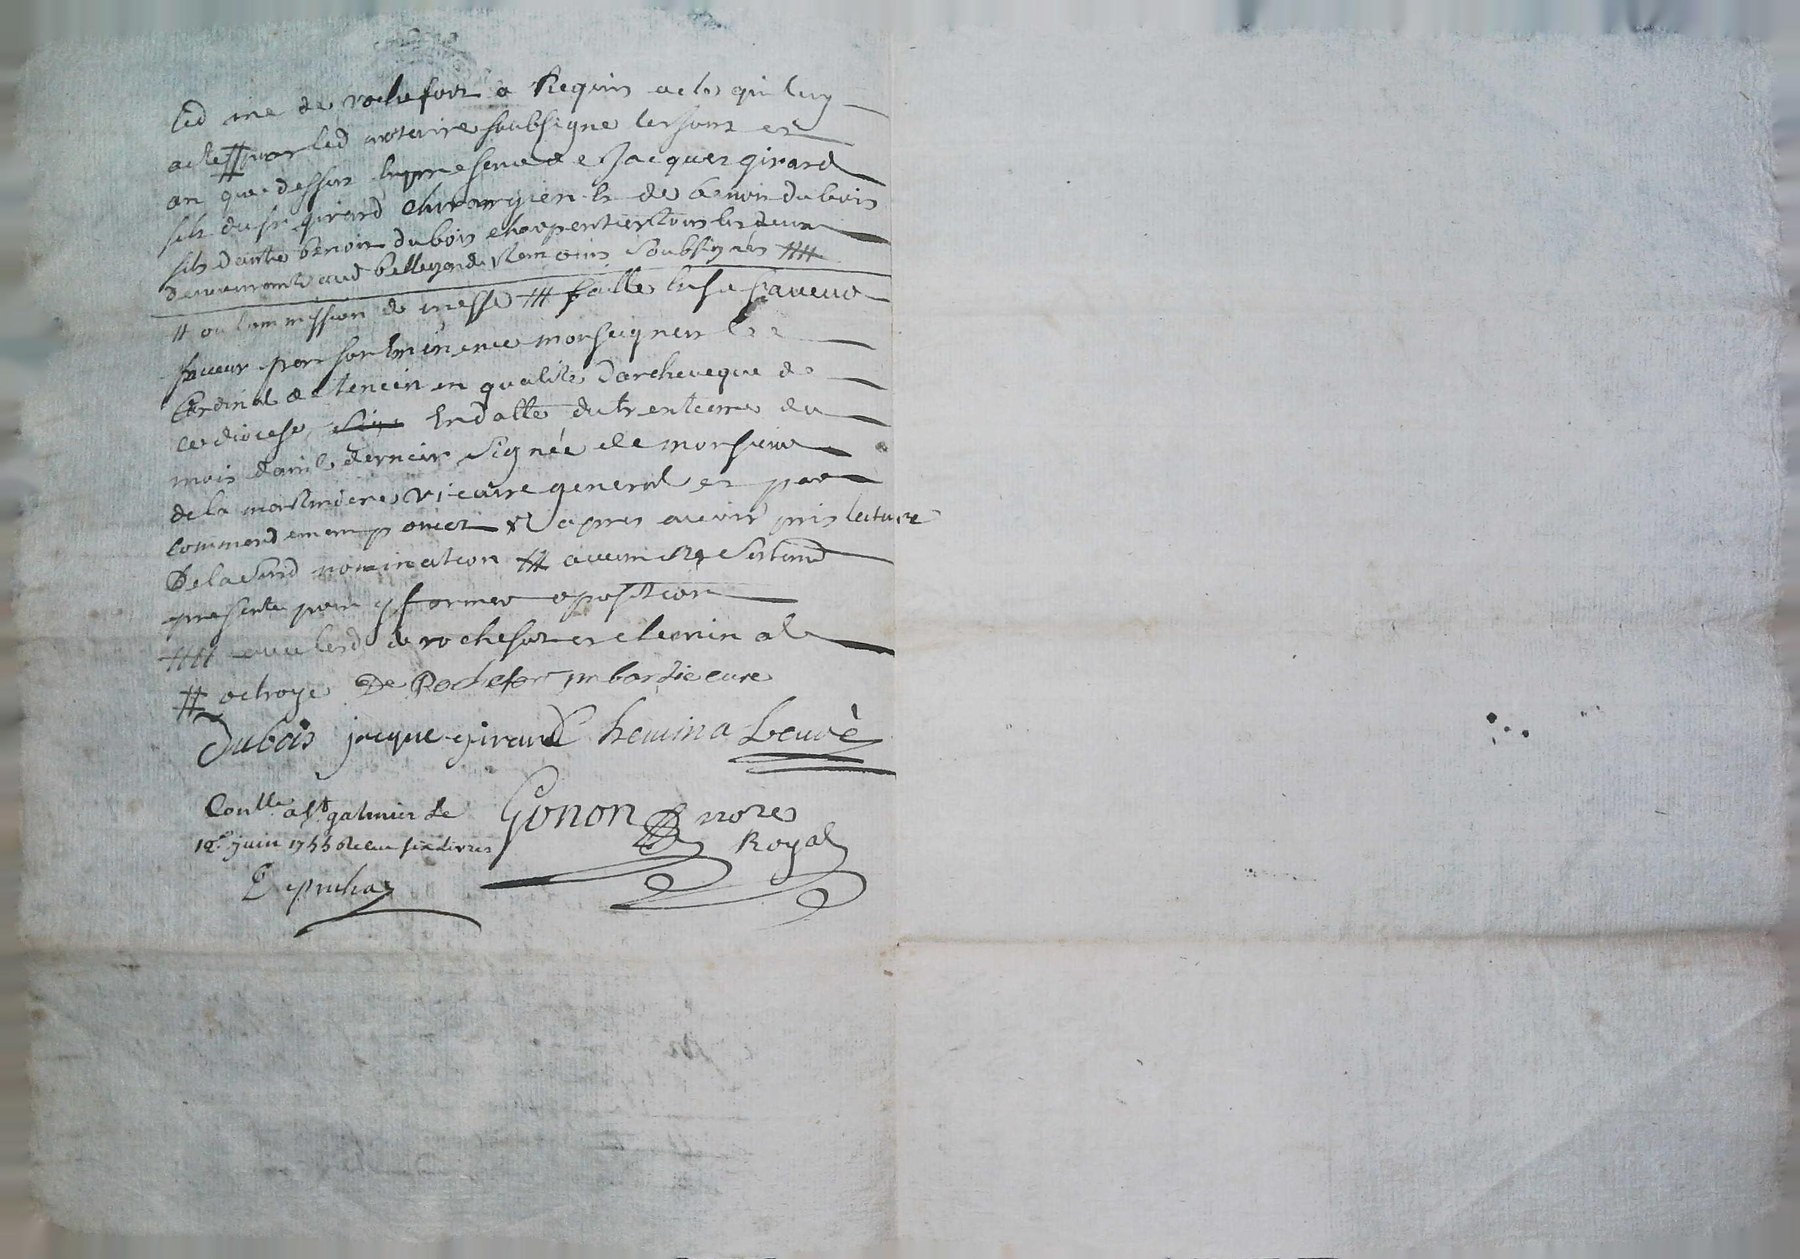 led me de rochefort a Requis acte qui luy
acte # par led notaire soubsigne les jour et
an que dessus en presence de Jacques girard
fils du sr girard chirurgien & de benoit dubois
fils dautre benoit dubois charpentier tous les deux
demeurants aud bellegarde temoins soubsignés ##
# ou commission de messe ## faitte en sa faveur
faveur par son eminence monseigneur le
Cardinal de tencin en qualité d'archeveque de
ce diocese en datte du trentieme du
mois d'avril dernier signée de monsieur
de la martiniere vicaire general et par
commendement et apres avoir pris lecture
De lad nomination ## aucun ne sestant
presenté pour y former oposition
### led de rochefort et chemin al
# octroyé De Rochefort imbardie curé
Dubois jacque girard Chemina Leuvé
Conllé a St galmier le
12e juin 1755 Receu six livres
Gonon nore
Royal